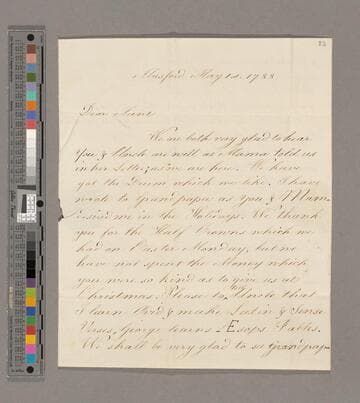 May 12. 1788
Dear Aunt
We are both very glad to hear
you & Uncle are well as Mama told us
in her Letter, as we are here. We have
got the Drum which we like. I have
wrote to Grandpapa as you & Mam
me in the Holidays. We thank
you for the Half Crowns which we
had on Easter Monday, but we
have not spent the Money which
you were so kind as to give us at
Christmas. Please to tell Uncle that
I learn Ovid & make Latin & Sense
Verses, George learns Æsops Fables.
We shall be very glad to see Grandpap